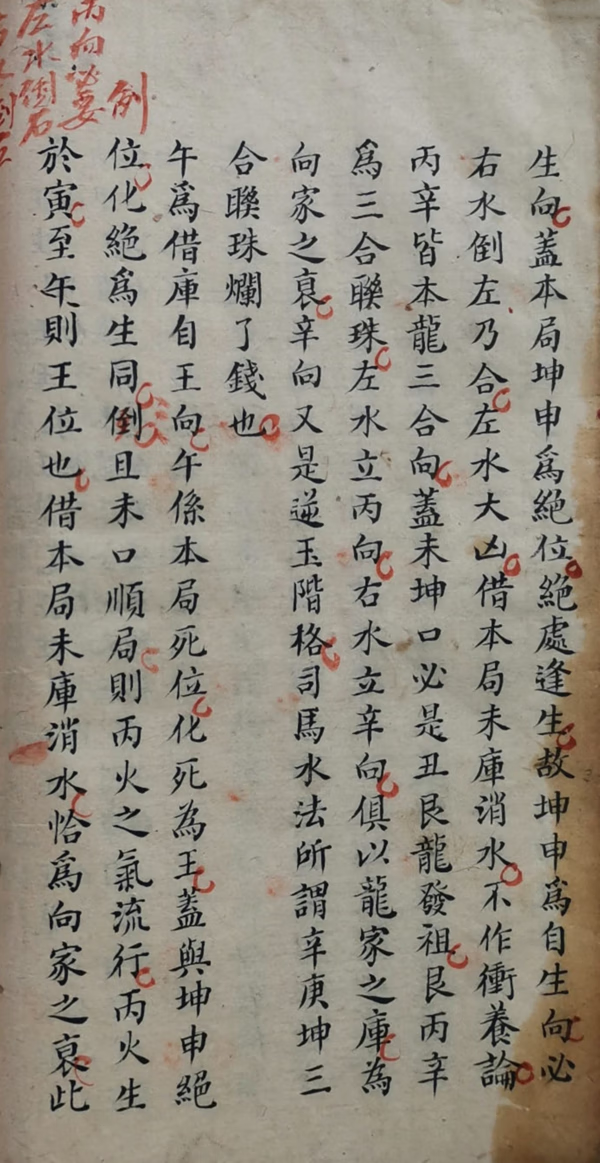 生向蓋本局坤申為絕位絕處逢生故坤申為自生向必
右水倒左乃合左水大凶借本局未庫消水不作衝養論
丙辛皆本龍三合向蓋未坤口必是丑艮龍發祖艮丙辛
為三合聯珠左水立丙向右水立辛向俱以龍家之庫為
向家之衰辛向又是逆玉階格司馬水法所謂辛庚坤三
合聯珠爛了錢也
午為借庫自王向午係本局死位化死為王蓋與坤申絕
位化絕為生同倒且未口順局則丙火之氣流行丙火生
於寅至午則王位也借本局未庫消水恰為向家之衰此
例
丙向必要
左水倒右